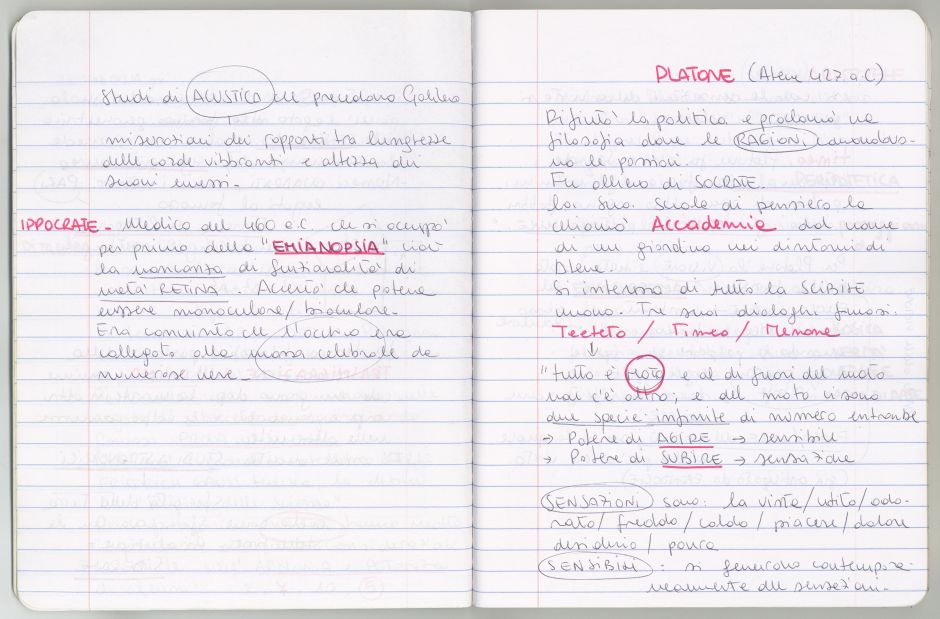 Studi di ACUSTICA che precedono Galileo
misurazioni dei rapporti tra lunghezze
delle corde vibranti e altezza dei
suoni emessi.
IPPOCRATE - Medico del 460 a.C. che si occupò
per primo della "EMIANOPSIA" cioè
la mancanza di funzionalità di
metà RETINA. Accertò che poteva
essere monoculare/binoculare.
Era convinto che l'occhio era
collegato alla massa celebrale da
numerose vene.
PLATONE (Atene 427 a.C)
Rifiutò la politica e proclamò una
filosofia dove le RAGIONI comandava-
no le passioni.
Fu allievo di SOCRATE.
La sua scuola di pensiero la
chiamò Accademia dal nome
di un giardino nei dintorni di
Atene.
Si interessa di tutto la SCIBILE
umano. Tre suoi dialoghi famosi:
Teeteto / Timeo / Menone
"tutto è MOTO e al di fuori del moto
non c'è altro; e del moto ci sono
due specie: infinite di numero entrambe
→ Potere di AGIRE → sensibile
→ Potere di SUBIRE → sensazione
SENSAZIONI sono: la vista/udito/odo-
rato/freddo/caldo/piacere/dolore
desiderio/paura
SENSIBILI: si generano contempora-
neamente alle sensazioni.